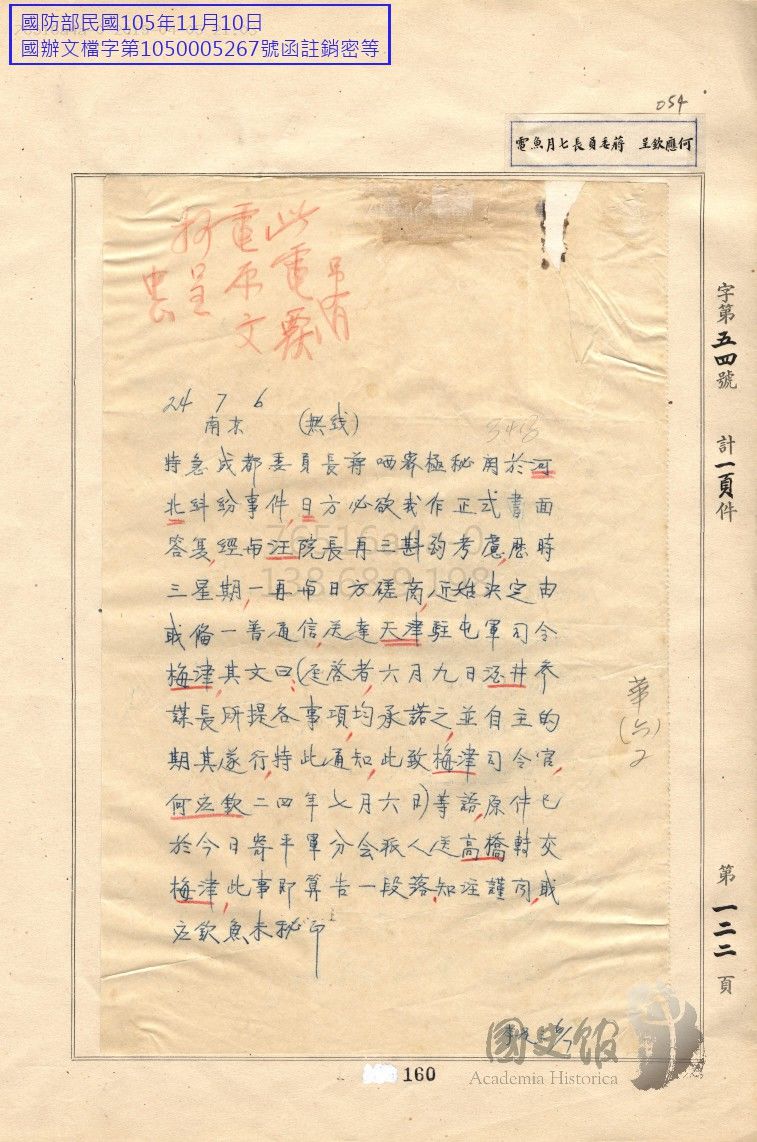 國防部民國105年11月10日
國辦文檔字第1050005267號函註銷密等
054
何應欽呈 蔣委員長七月魚電
吊有
此電要
電原文
抄呈
24 7 6
南京 (無线)
特急成都委員長蔣 密極秘関於河
北糾紛事件,日方必欲我作正式書面
答复,經与汪院長再三斟酌考慮,歷時
三星期,一再与日方磋商,近始决定由
職俻一普通信,送達天津駐屯軍司令
梅津,其文曰:(逕啓者,六月九日酒井参
謀長所提各事項,均承諾之,並自主的
期其遂行,特此通知,此致梅津司令官,
何应欽二四年七月六日)等語,原件已
於今日寄平軍分会派人送高橋轉交
梅津,此事即算告一段落,知注謹聞,職
应欽魚未秘印
字第五四號 計一頁件 第一二二頁
華(六)2
160
國史館
Academia Historica